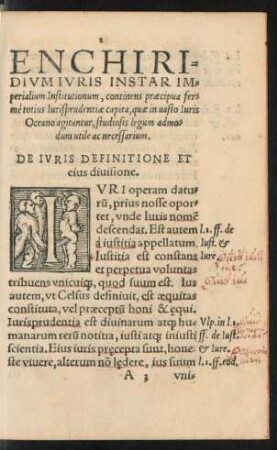 ENCHIRI-
DIVM IVRIS INSTAR IM-
perialium Institutionum, continens præcipua fer-
mè totius Iurisprudentiæ capita, quæ in uasto Iuris
Oceano agitantur, studiosis legum admo-
dum utile ac necessarium.
DE IVRIS DEFINITIONE ET
eius diuisione.
IVRI operam datu-
rũ, prius nosse opor-
tet, unde Iuris nomẽ
descendat. Est autem
l.1. ff. de
à iustitia appellatum.
Iust. &
Iustitia est constans
Iure.
et perpetua voluntas
tribuens vnicuiq;, quod suum est. Ius
autem, vt Celsus definiuit, est æquitas
constituta, vel præceptũ boni & equi.
Iurisprudentia est diuinarum atq; hu
Vlp. in l.1.
manarum rerũ notitia, iusti atq; iniusti
ff. de Iust.
scientia. Eius iuris præcepta sunt, hone
& Iure.
ste viuere, alterum nõ lędere, ius suum
l.1. ff. eod.
A 3 vni-